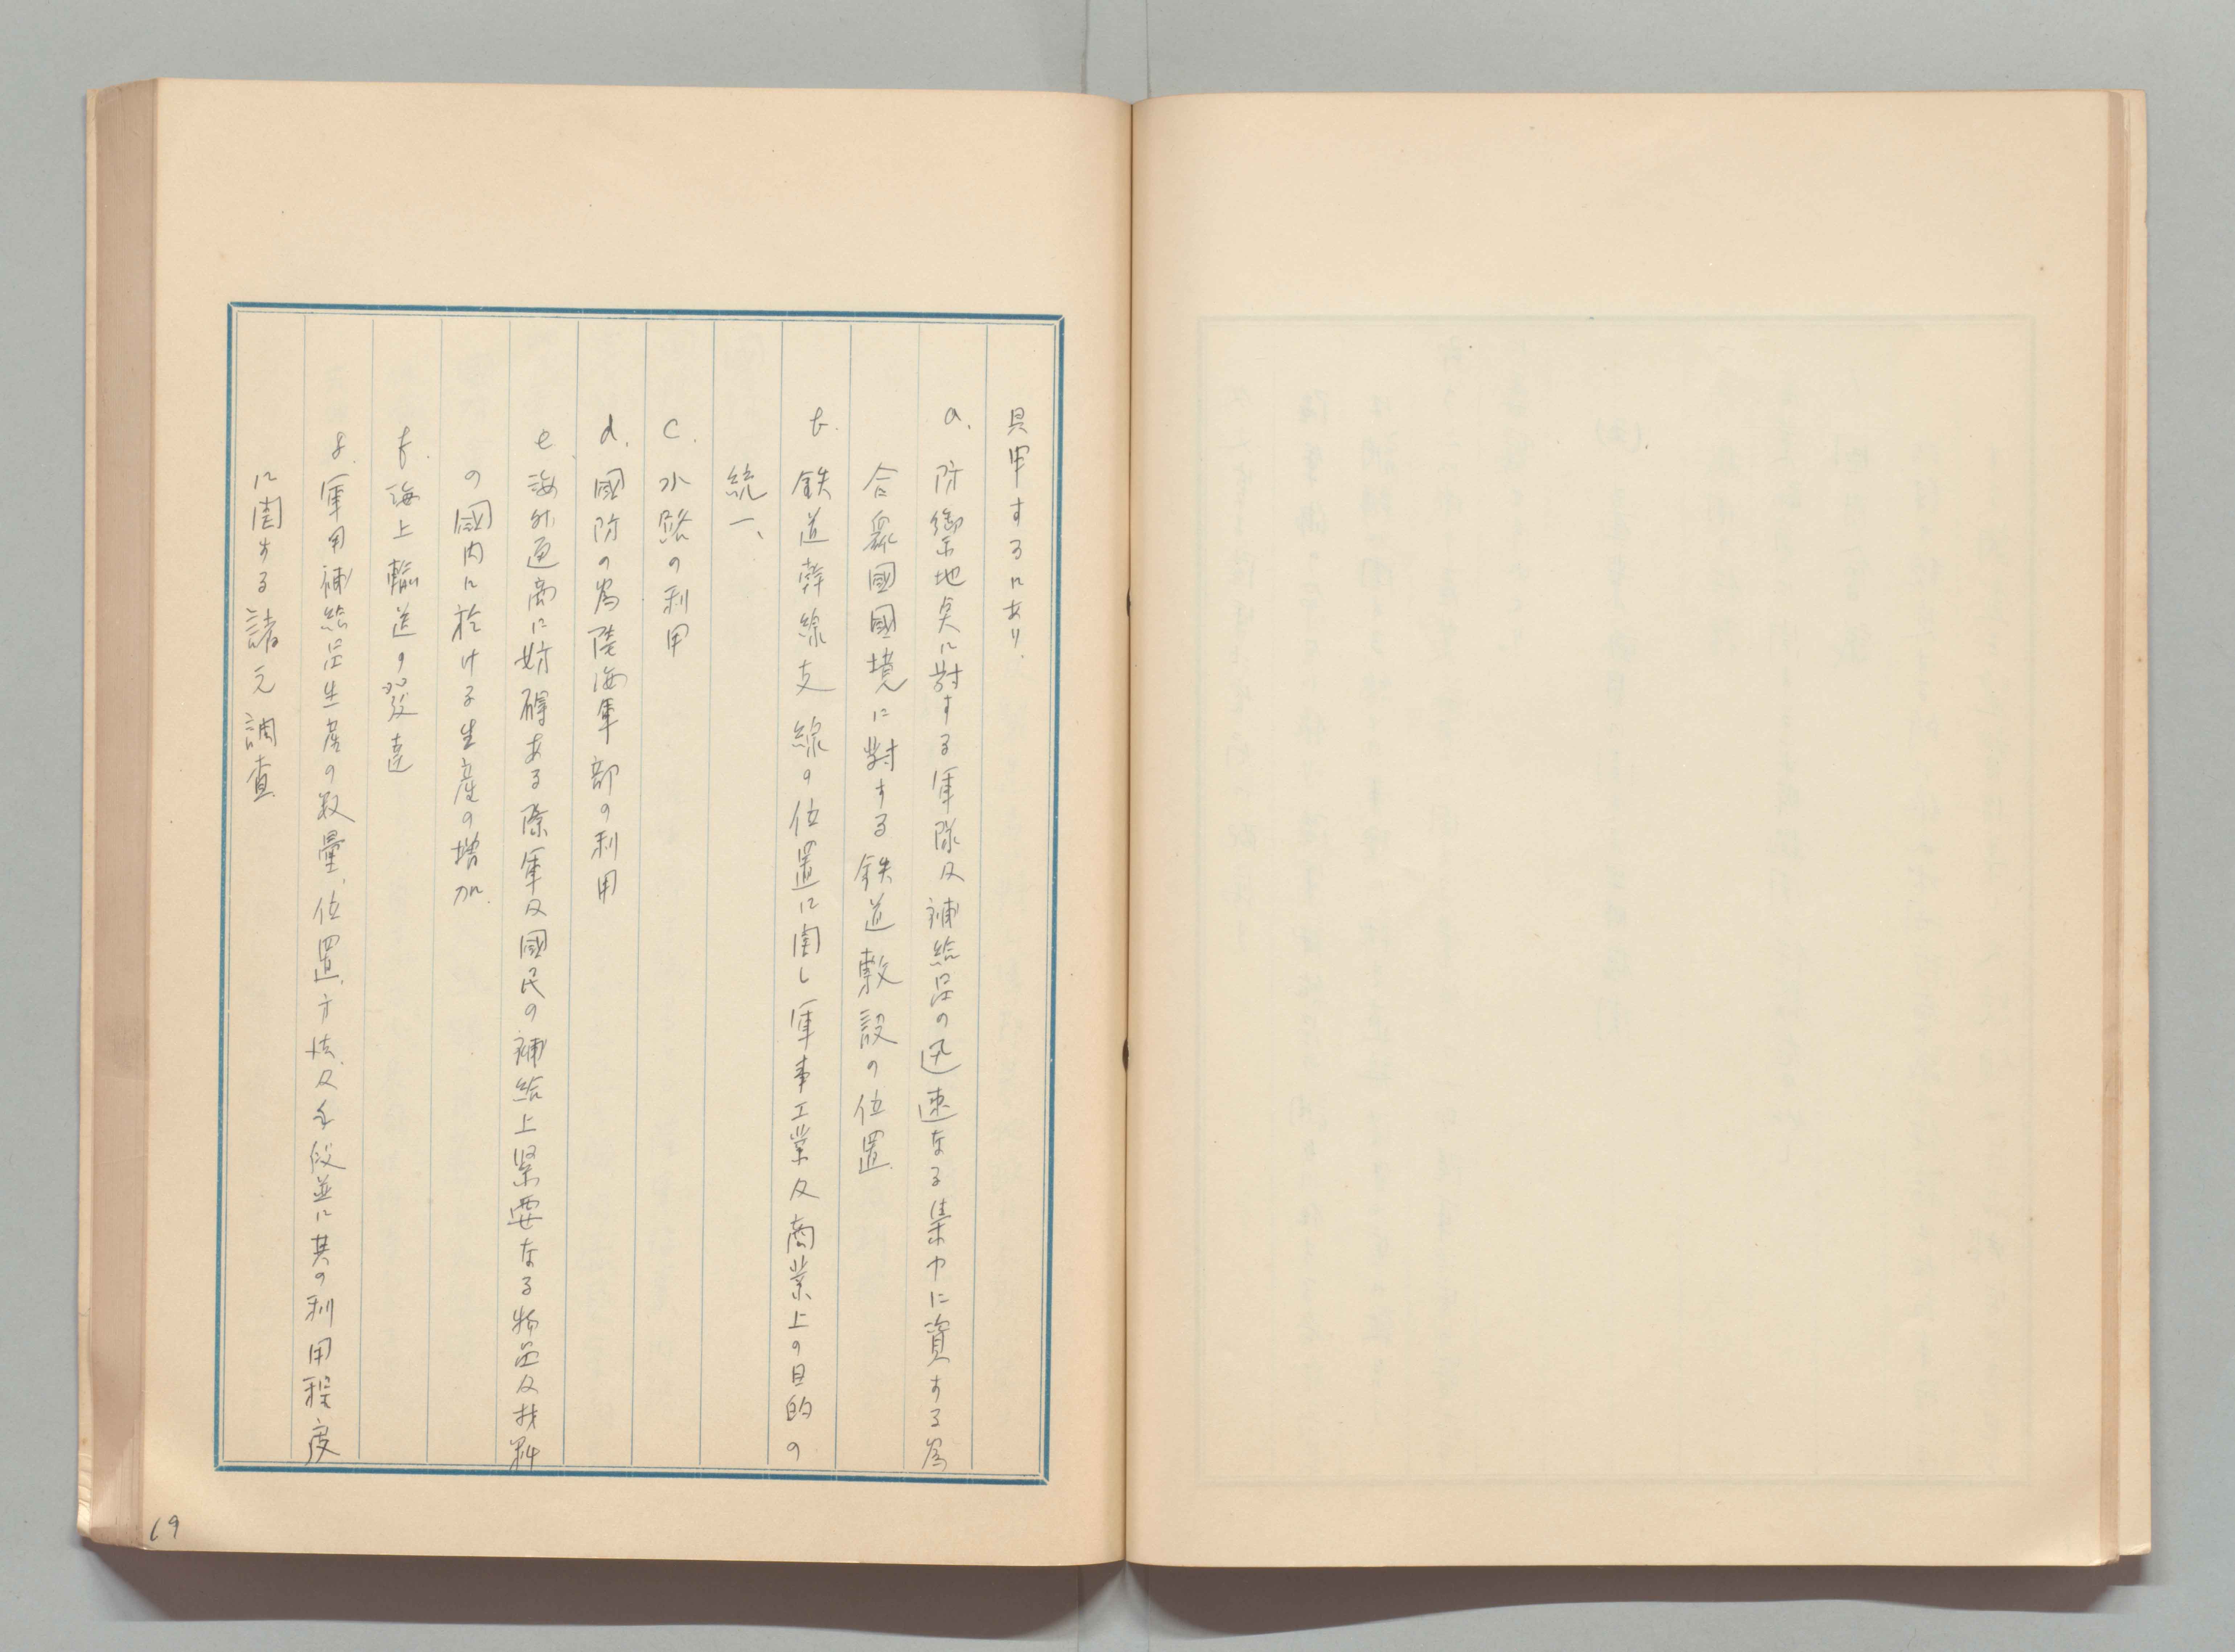 具申するにあり.
a. 防禦地点に対する軍隊及補給品の迅速なる集中に資する為
合衆國國境に對する鉄道敷設の位置.
b. 鉄道幹線支線の位置に関し軍事工業及商業上の目的の
統一、
c. 水路の利用
d. 國防の為陸海軍部の利用
e. 海外通商に妨碍ある際軍及國民の補給上緊要なる物品及材料
の國内に於ける生産の増加.
f. 海上輸送の発達
g. 軍用補給品生産の数量、位置、方法、及手段並に其の利用程度
に関する諸元調査.
69